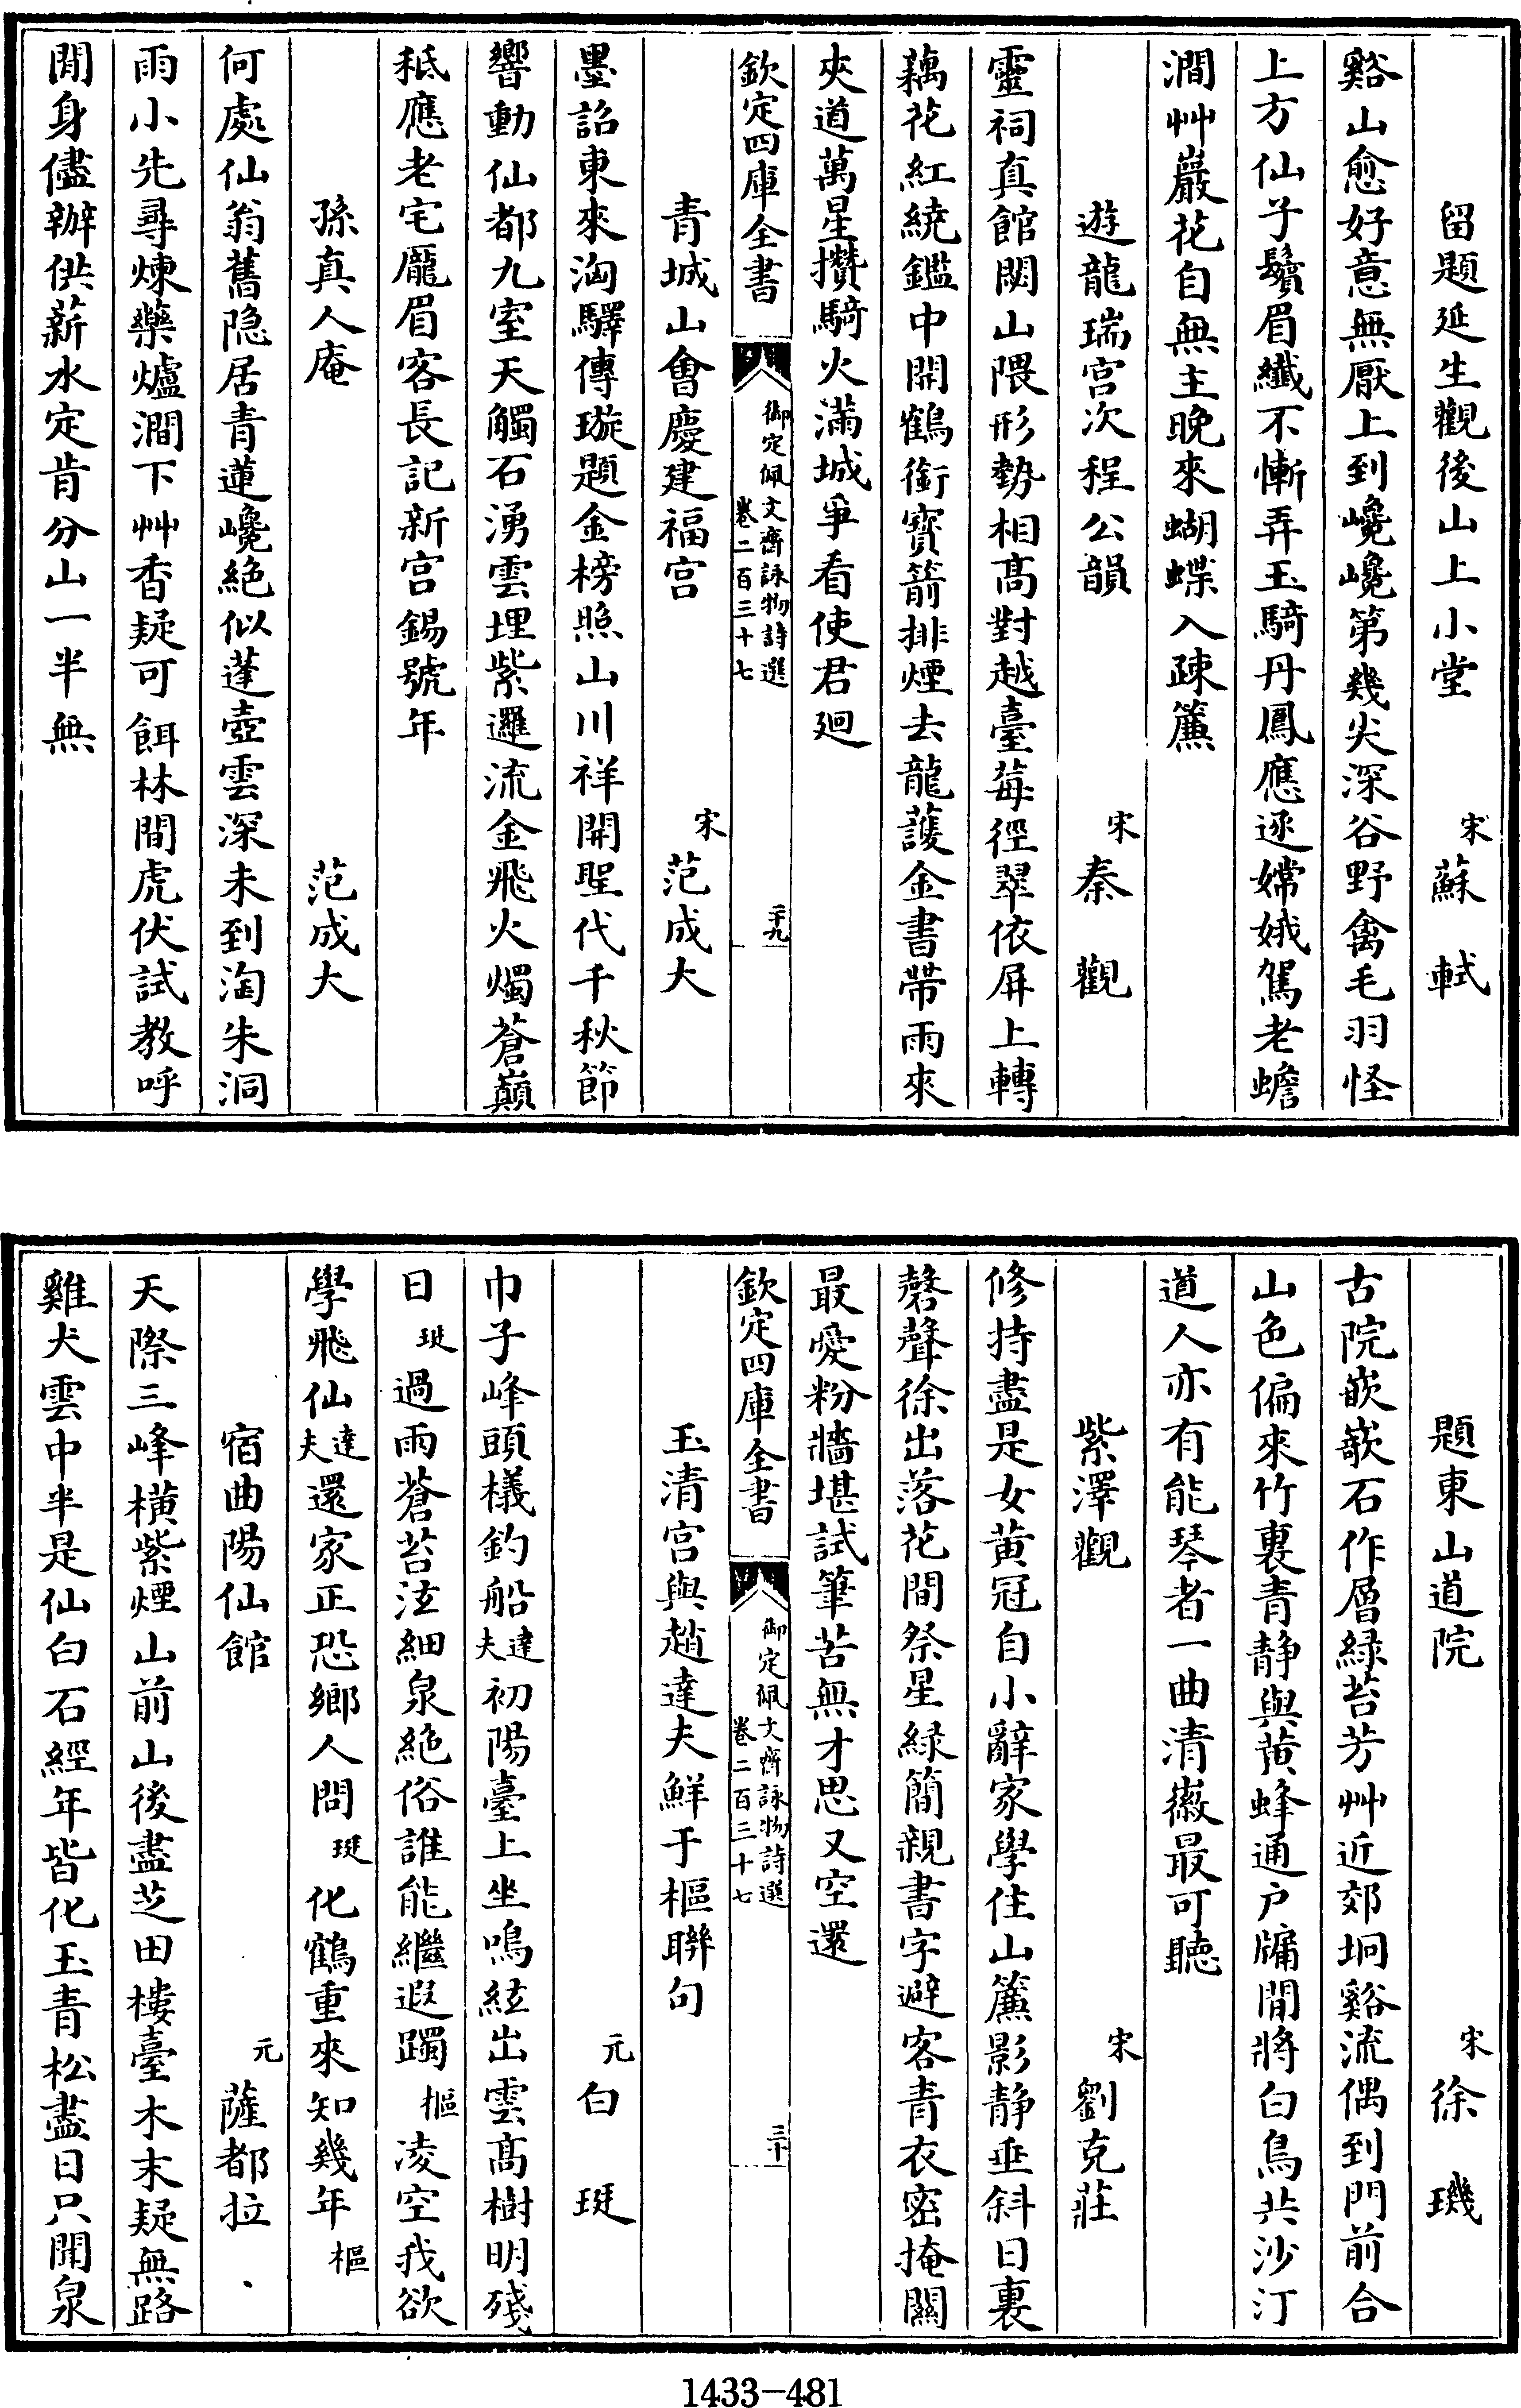 留題延生觀後山上小堂　宋蘇軾
谿山愈好意無厭上到巉巉第幾尖深谷野禽毛羽怪
上方仙子鬢眉纖不慚弄玉騎丹鳳應逐嫦娥駕老蟾
澗艸巖花自無主晚來蝴蝶入疎簾
遊龍瑞宮次程公韻　宋秦觀
靈祠真館閟山隈形勢相高對越臺莓徑翠依屏上轉
藕花紅繞鑑中開鶴銜寶箭排煙去龍護金書帶雨來
夾道萬星攢騎火滿城爭看使君廻
欽定四庫全書　御定佩文齋詠物詩選　卷二百三十七　二十九
青城山會慶建福宮　宋范成大
墨詔東來洶驛傳璇題金榜照山川祥開聖代千秋節
響動仙都九室天觸石湧雲埋紫邏流金飛火燭蒼巔
秪應老宅龐眉客長記新宮錫號年
孫真人庵　范成大
何處仙翁舊隐居青蓮巉絶似蓬壺雲深未到淘朱洞
雨小先尋煉藥爐澗下艸香疑可餌林間虎伏試教呼
閒身儘辦供薪水定肯分山一半無
題東山道院　宋徐璣
古院嵌嵌石作層緑苔芳艸近郊坰谿流偶到門前合
山色偏來竹裏青靜與黃蜂通户牖閒將白鳥共沙汀
道人亦有能琴者一曲清徽最可聽
紫澤觀　宋劉克莊
修持盡是女黃冠自小辭家學住山簾影靜垂斜日裏
磬聲徐出落花間祭星緑簡親書字避客青衣密掩關
最愛粉牆堪試筆苦無才思又空還
欽定四庫全書　御定佩文齋詠物詩選　卷二百三十七　三十
玉清宮與趙達夫鮮于樞聯句
元白珽
巾子峰頭檥釣船達夫初陽臺上坐鳴絃出雲高樹明殘
日珽過雨蒼苔泫細泉絶俗誰能繼遐躅樞凌空我欲
學飛仙達夫還家正恐鄉人問珽化鶴重來知幾年樞
宿曲陽仙館　元薩都拉
天際三峰橫紫煙山前山後盡芝田樓臺木末疑無路
雞犬雲中半是仙白石經年皆化玉青松盡日只聞泉
1433-481